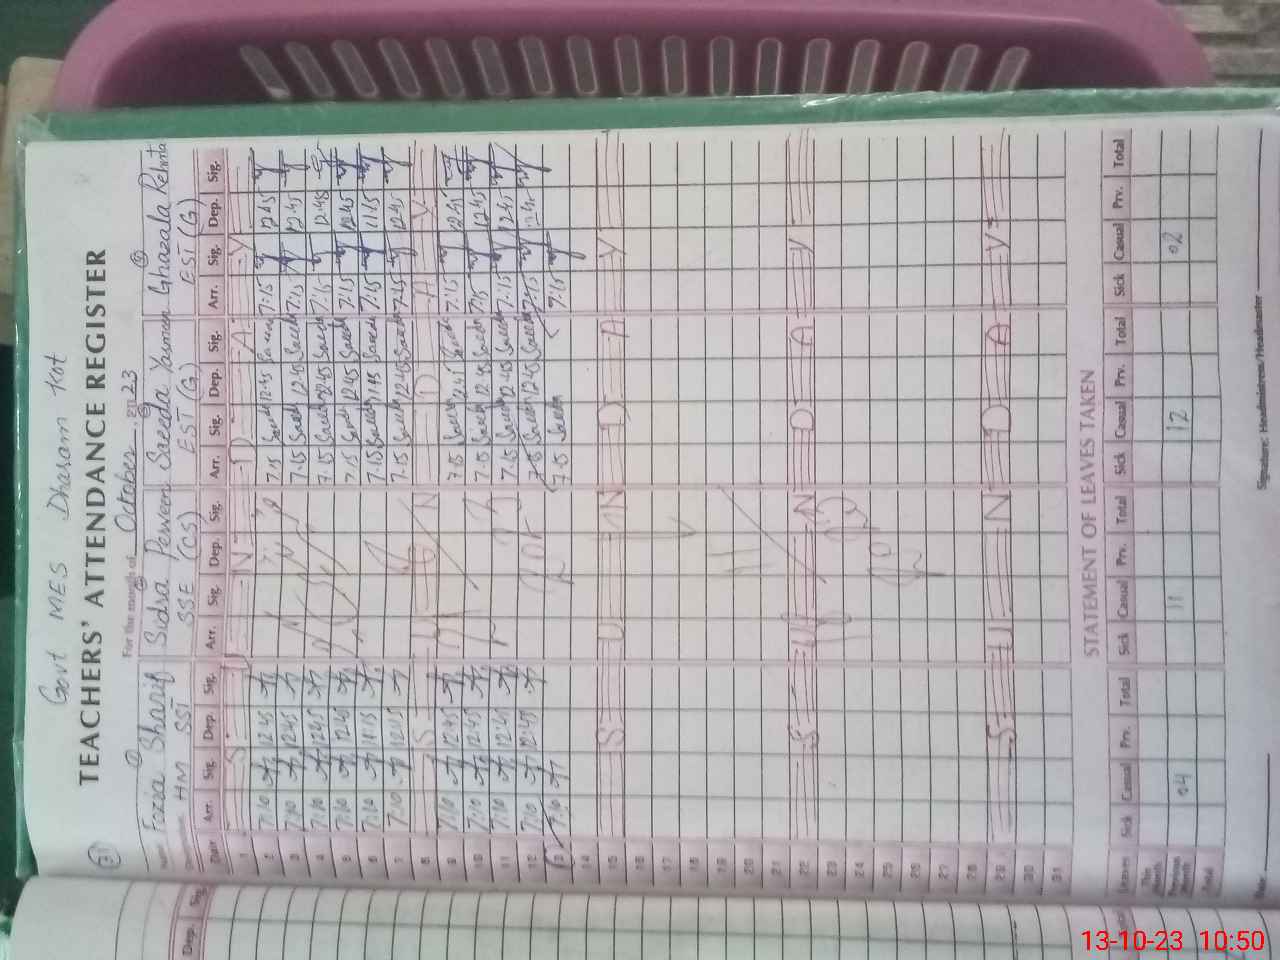 31
Govt MES Dharam Kot
TEACHERS' ATTENDANCE REGISTER
For the month of October 2023
Fozia Sharif Sidra Perveen Saeeda Yasmeen Ghazala Rehmat
HM SST SSE (CS) EST (G) EST (G)
Date Arr. Sig. Dep. Sig. Arr. Sig. Dep. Sig. Arr. Sig. Dep. Sig. Arr. Sig. Dep. Sig.
1 S U N D A Y
2 7:10 12:45 7:15 Saeeda 12:45 Saeeda 7:15 12:45
3 7:10 12:45 7:15 Saeeda 12:45 Saeeda 7:15 12:45
4 7:10 12:45 7:15 Saeeda 12:45 Saeeda 7:15 12:45
5 7:10 12:45 7:15 Saeeda 12:45 Saeeda 7:15 12:45
6 7:10 11:15 7:15 Saeeda 11:15 Saeeda 7:15 11:15
7 7:10 12:45 7:15 Saeeda 12:45 Saeeda 7:15 12:45
8 S U N D A Y
9 7:10 12:45 7:15 Saeeda 12:45 Saeeda 7:15 12:45
10 7:10 12:45 7:15 Saeeda 12:45 Saeeda 7:15 12:45
11 7:10 12:45 7:15 Saeeda 12:45 Saeeda 7:15 12:45
12 7:10 12:45 7:15 Saeeda 12:45 Saeeda 7:15 12:45
13 7:10 7:15 Saeeda 7:15
14
15 S U N D A Y
16
17
18
19
20
21
22 S U N D A Y
23
24
25
26
27
28
29 S U N D A Y
30
31
STATEMENT OF LEAVES TAKEN
Leaves Sick Casual Prv. Total Sick Casual Prv. Total Sick Casual Prv. Total Sick Casual Prv. Total
This Month
Previous Month 04 11 12 02
Total
Signature: Headmistress/Headmaster
Dep. Sig.
13-10-23 10:50